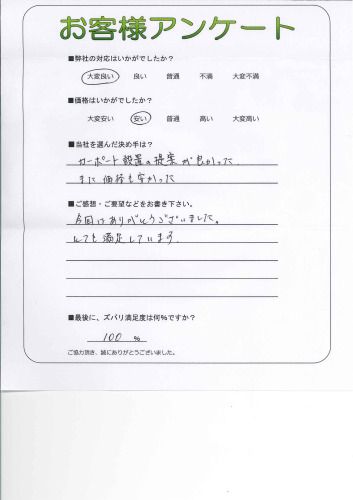 お客様アンケート
■弊社の対応はいかがでしたか?
大変良い 良い 普通 不満 大変不満
■価格はいかがでしたか?
大変安い 安い 普通 高い 大変高い
■当社を選んだ決め手は?
カーポート設置の提案が良かった
また価格も安かった
■ご感想・ご要望などをお書き下さい。
今回はありがとうございました。
とても満足しています。
■最後に、ズバリ満足度は何%ですか?
100 %
ご協力頂き、誠にありがとうございました。